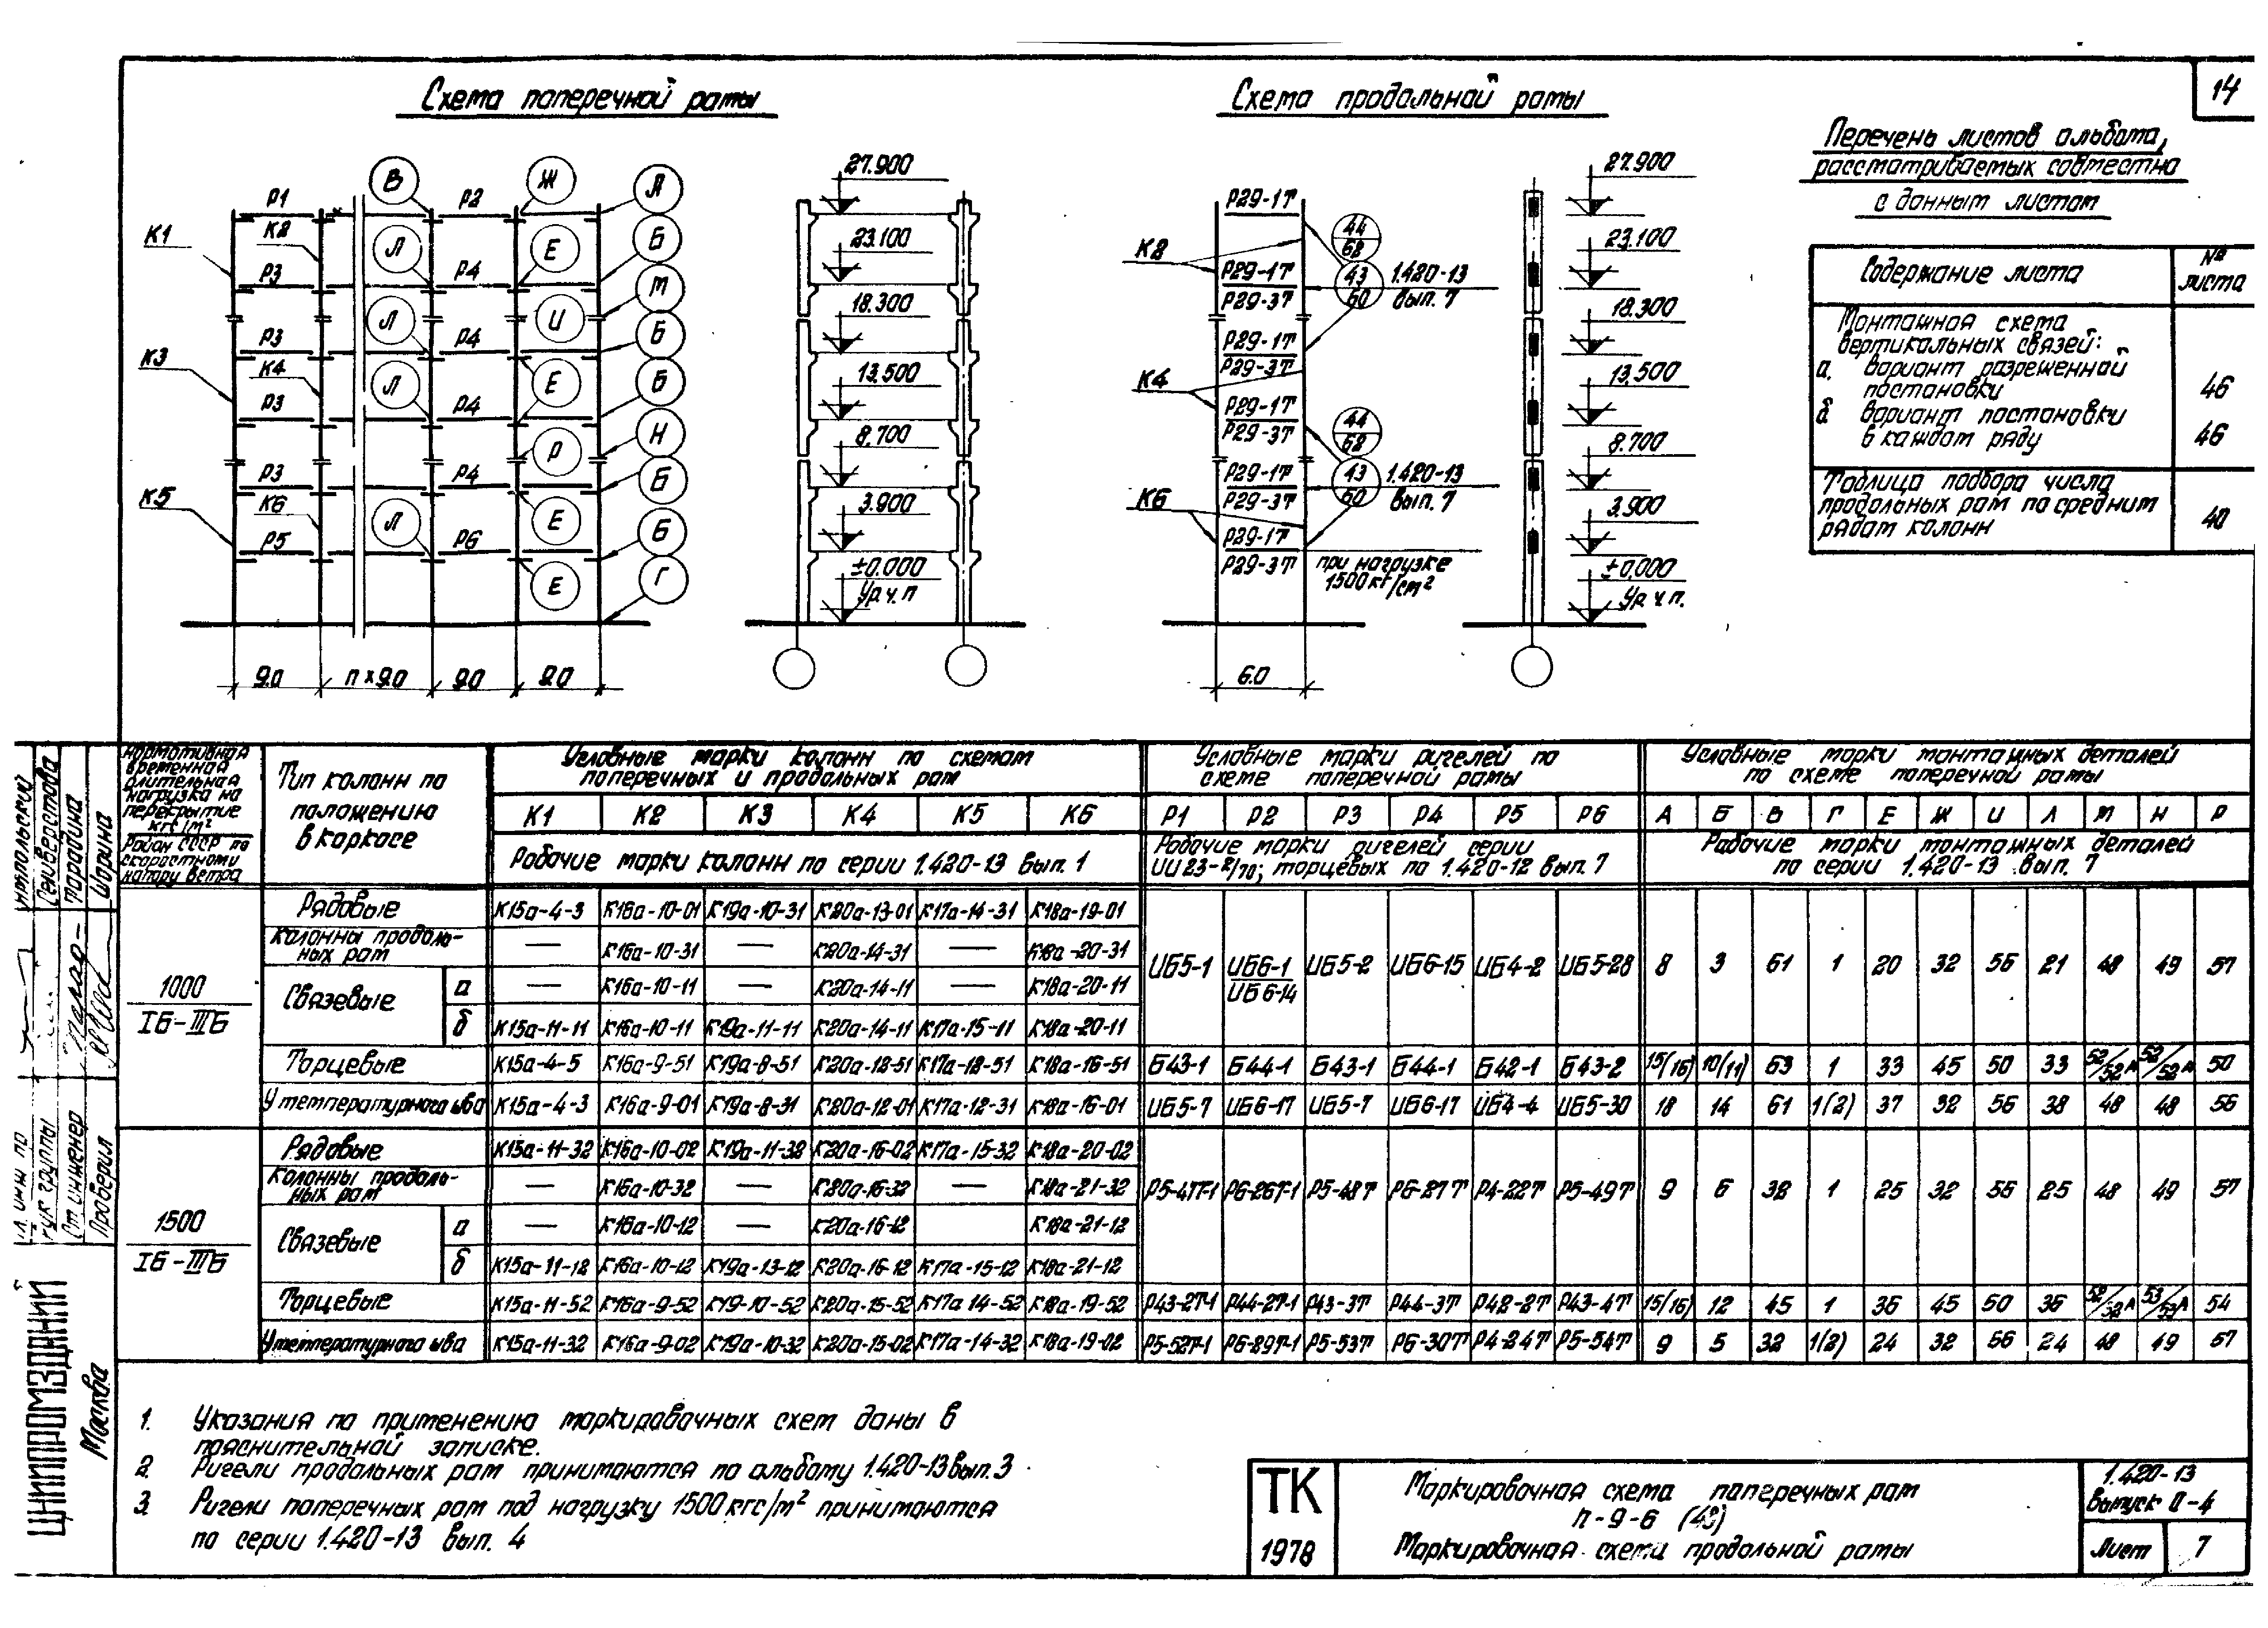 14
Схема поперечной рамы
Схема продольной рамы
Перечень листов альбома,
рассматриваемых совместно
с данным листом
Содержание листа
№№ листа
Монтажная схема
вертикальных связей:
а. вариант разреженной
постановки 46
б. вариант постановки
в каждом ряду 46
Таблица подбора числа
продольных рам по средним
рядам колонн 40
Р1 В Р2 Ж А
К1 К2 Л Е Б
Р3 Р4 М
Л И
Р3 Р4 Б
К3 К4 Л Е Б
Р3 Р4 Н
Р
Р3 Р4 Б
К5 К6 Л Е Б
Р5 Р6
Е Г
9.0 п×9.0 9.0 9.0
27.900
23.100
18.300
13.500
8.700
3.900
±0.000
Ур.ч.п
Р29-1Т
К2 44/62
Р29-1Т 43/60 1.420-13
Р29-3Т вып. 7
Р29-1Т
Р29-3Т
К4
Р29-1Т 44/62
Р29-3Т
Р29-1Т 43/60 1.420-13
Р29-3Т вып. 7
К6
Р29-1Т
Р29-3Т
при нагрузке
1500 кг/см²
6.0
27.900
23.100
18.300
13.500
8.700
3.900
±0.000
Ур.ч.п.
Нормативная
временная
длительная
нагрузка на
перекрытие
кгс/м²
Район СССР по
скоростному
напору ветра
Тип колонн по
положению
в каркасе
Условные марки колонн по схемам
поперечных и продольных рам
К1 К2 К3 К4 К5 К6
Рабочие марки колонн по серии 1.420-13 вып. 1
Условные марки ригелей по
схеме поперечной рамы
Р1 Р2 Р3 Р4 Р5 Р6
Рабочие марки ригелей серии
ИИ23-2/70; торцевых по 1.420-12 вып. 7
Условные марки монтажных деталей
по схеме поперечной рамы
А Б В Г Е Ж И Л М Н Р
Рабочие марки монтажных деталей
по серии 1.420-13 вып. 7
1000
IБ-IIIБ
Рядовые К15а-4-3 К16а-10-01 К19а-10-31 К20а-13-01 К17а-14-31 К18а-19-01
Колонны продоль-
ных рам — К16а-10-31 — К20а-14-31 — К18а-20-31
Связевые а — К16а-10-11 — К20а-14-11 — К18а-20-11
б К15а-11-11 К16а-10-11 К19а-11-11 К20а-14-11 К17а-15-11 К18а-20-11
ИБ5-1 ИБ6-1/ИБ6-14 ИБ5-2 ИБ6-15 ИБ4-2 ИБ5-28 8 3 61 1 20 32 56 21 48 49 57
Торцевые К15а-4-5 К16а-9-51 К19а-8-51 К20а-12-51 К17а-12-51 К18а-16-51 Б43-1 Б44-1 Б43-1 Б44-1 Б42-1 Б43-2 15(16) 10(11) 63 1 33 45 50 33 52/52А 52/52А 50
У температурного шва К15а-4-3 К16а-9-01 К19а-8-31 К20а-12-01 К17а-12-31 К18а-16-01 ИБ5-7 ИБ6-17 ИБ5-7 ИБ6-17 ИБ4-4 ИБ5-30 18 14 61 1(2) 37 32 56 38 48 48 56
1500
IБ-IIIБ
Рядовые К15а-11-32 К16а-10-02 К19а-11-32 К20а-16-02 К17а-15-32 К18а-20-02
Колонны продоль-
ных рам — К16а-10-32 — К20а-16-32 — К18а-21-32
Связевые а — К16а-10-12 — К20а-16-12 — К18а-21-12
б К15а-11-12 К16а-10-12 К19а-13-12 К20а-16-12 К17а-15-12 К18а-21-12
Р5-47Т-1 Р6-26Т-1 Р5-48Т Р6-27Т Р4-22Т Р5-49Т 9 6 32 1 25 32 56 25 48 49 57
Торцевые К15а-11-52 К16а-9-52 К19-10-52 К20а-15-52 К17а 14-52 К18а-19-52 Р43-2Т-1 Р44-2Т-1 Р43-3Т Р44-3Т Р42-2Т Р43-4Т 15(16) 12 45 1 36 45 50 36 52/52А 53/53А 54
У температурного шва К15а-11-32 К16а-9-02 К19а-10-32 К20а-15-02 К17а-14-32 К18а-19-02 Р5-52Т-1 Р6-29Т-1 Р5-53Т Р6-30Т Р4-24Т Р5-54Т 9 5 32 1(2) 24 32 56 24 48 49 57
1. Указания по применению маркировочных схем даны в
пояснительной записке.
2. Ригели продольных рам принимаются по альбому 1.420-13 вып. 3
3. Ригели поперечных рам под нагрузку 1500 кгс/м² принимаются
по серии 1.420-13 вып. 4
ТК
1978
Маркировочная схема поперечных рам
п-9-6 (48)
Маркировочная схема продольной рамы
1.420-13
выпуск 0-4
Лист 7
Селиверстова
Шарина
Рук группы
Ст инженер
Проверил
ЦНИИПРОМЗДАНИЙ
Москва